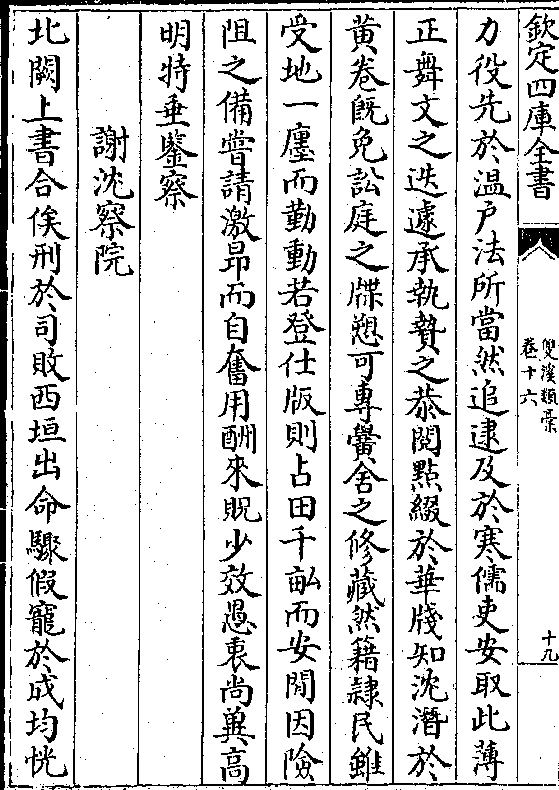 欽定四庫全書
雙溪類稾
卷十六
十九
力役先於溫戸法所當然追逮及於寒儒吏安取此薄
正舞文之迭遽承執贄之恭閱點綴於華牋知沈潛於
黃卷旣免訟庭之牒愬可專黌舍之修藏然籍隷民雖
受地一廛而勤動若登仕版則占田千畝而安閒因險
阻之備嘗請激昂而自奮用酬來貺少效愚衷尚冀高
明特垂鑒察
謝沈察院
北闕上書合俟刑於司敗西垣出命驟假寵於成均恍